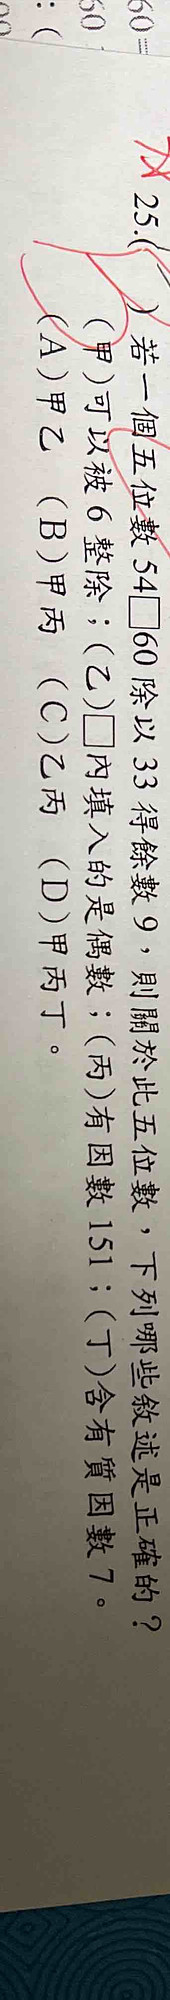 60
60
: (
25.( ) 若一個五位數 54□60 除以 33 得餘數 9，則關於此五位數，下列哪些敘述是正確的？
(甲)可以被 6 整除；(乙)□內填入的是偶數；(丙)有因數 151；(丁)含有質因數 7。
(A)甲乙 (B)甲丙 (C)乙丙 (D)甲丙丁。